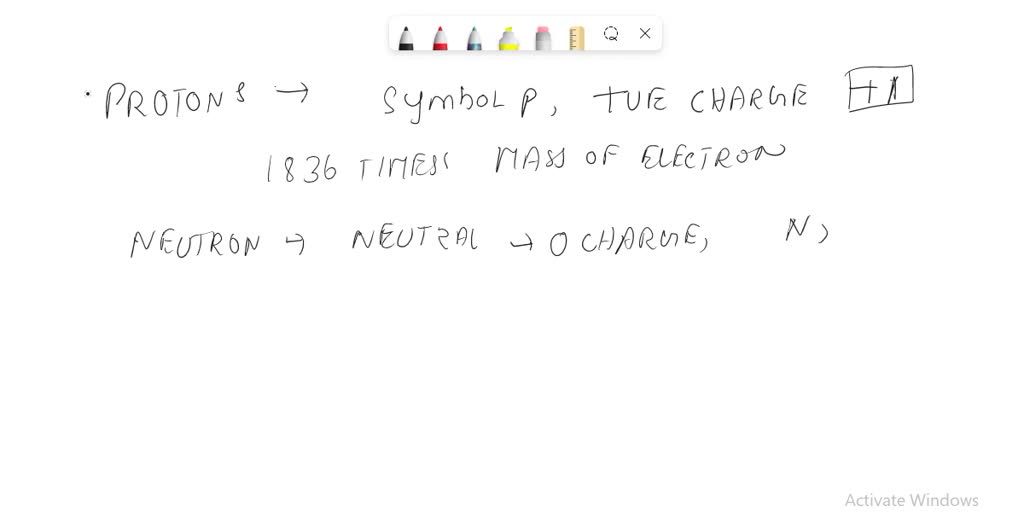 • PROTONS → Symbol P, +VE CHARGE +1
1836 TIMES MASS OF ELECTRON
NEUTRON → NEUTRAL → 0 CHARGE, N,
Activate Windows